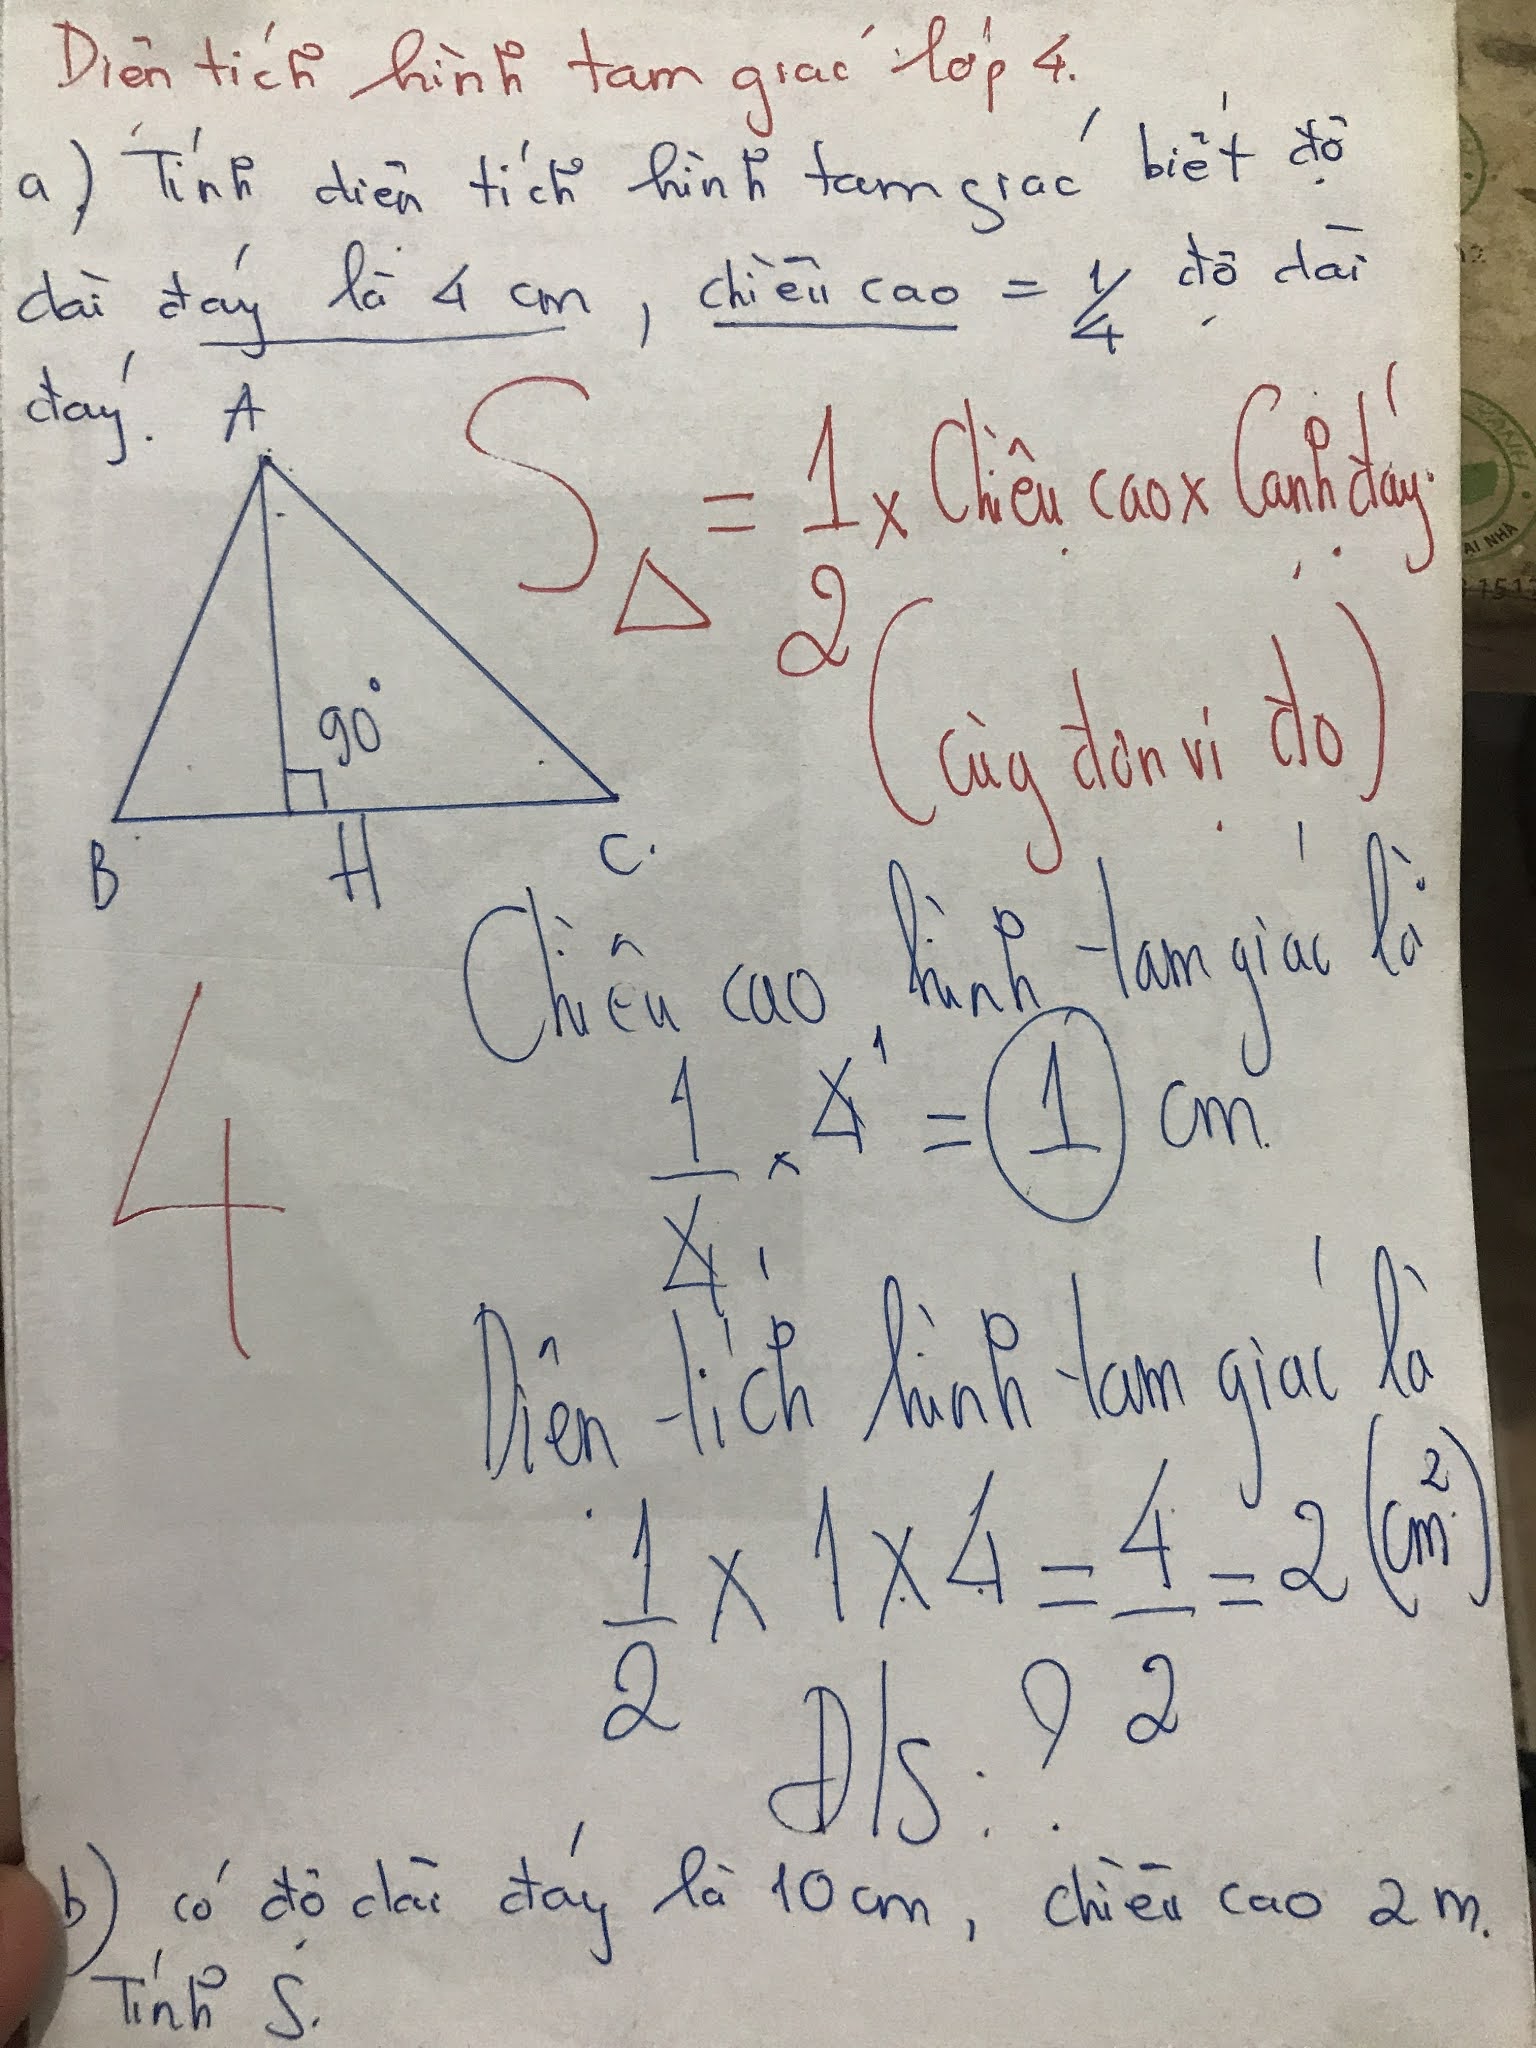 Diện tích hình tam giác lớp 4.
a) Tính diện tích hình tam giác biết độ
dài đáy là 4 cm, chiều cao = 1/4 độ dài
đáy.
A
S△ = 1/2 x Chiều cao x Cạnh đáy.
(cùg đơn vị đo)
90°
B
H
C.
Chiều cao hình tam giác là
1/4 x 4 1 = 1 cm
4
Diện tích hình tam giác là
1/2 x 1 x 4 = 4/2 = 2 (cm²)
Đ/S: ?
b) có độ dài đáy là 10 cm, chiều cao 2 m.
Tính S.
ẠI NHÀ